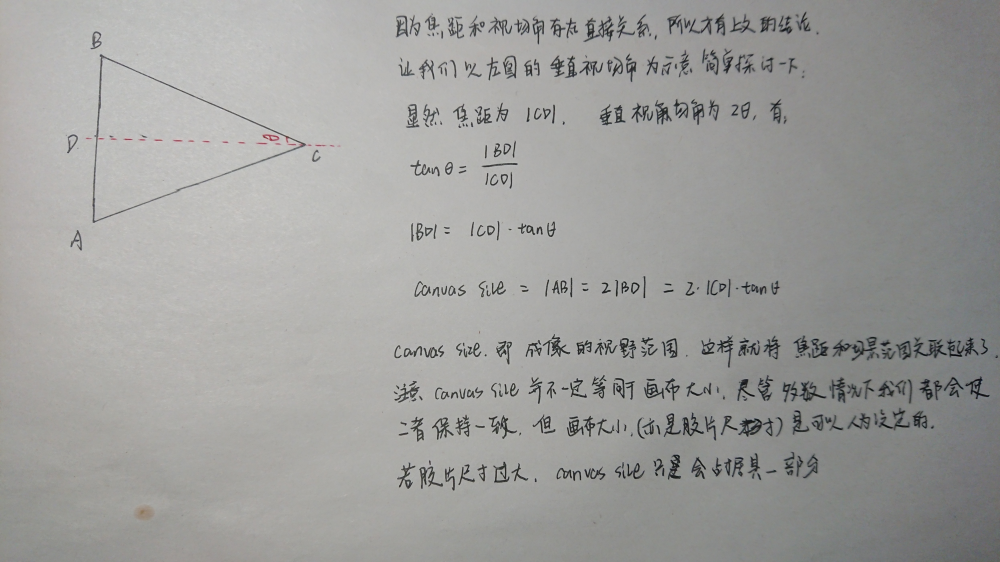 B
D
θ
C
A
因为焦距和视切角存在直接关系，所以才有上文的结论.
让我们以左图的垂直视切角为示意简单探讨一下:
显然 焦距为 |CD|, 垂直视切角为 2θ, 有:
tanθ = |BD| / |CD|
|BD| = |CD| · tanθ
canvas size = |AB| = 2|BD| = 2·|CD|·tanθ
canvas size. 即 成像的视野范围. 这样就将 焦距和场景范围关联起来了.
注意 canvas size 并不一定等同于画布大小. 尽管多数情况下我们都会使
二者保持一致. 但 画布大小 (亦是胶片尺寸) 是可以人为设定的.
若胶片尺寸过大. canvas size 只是会占据其一部分